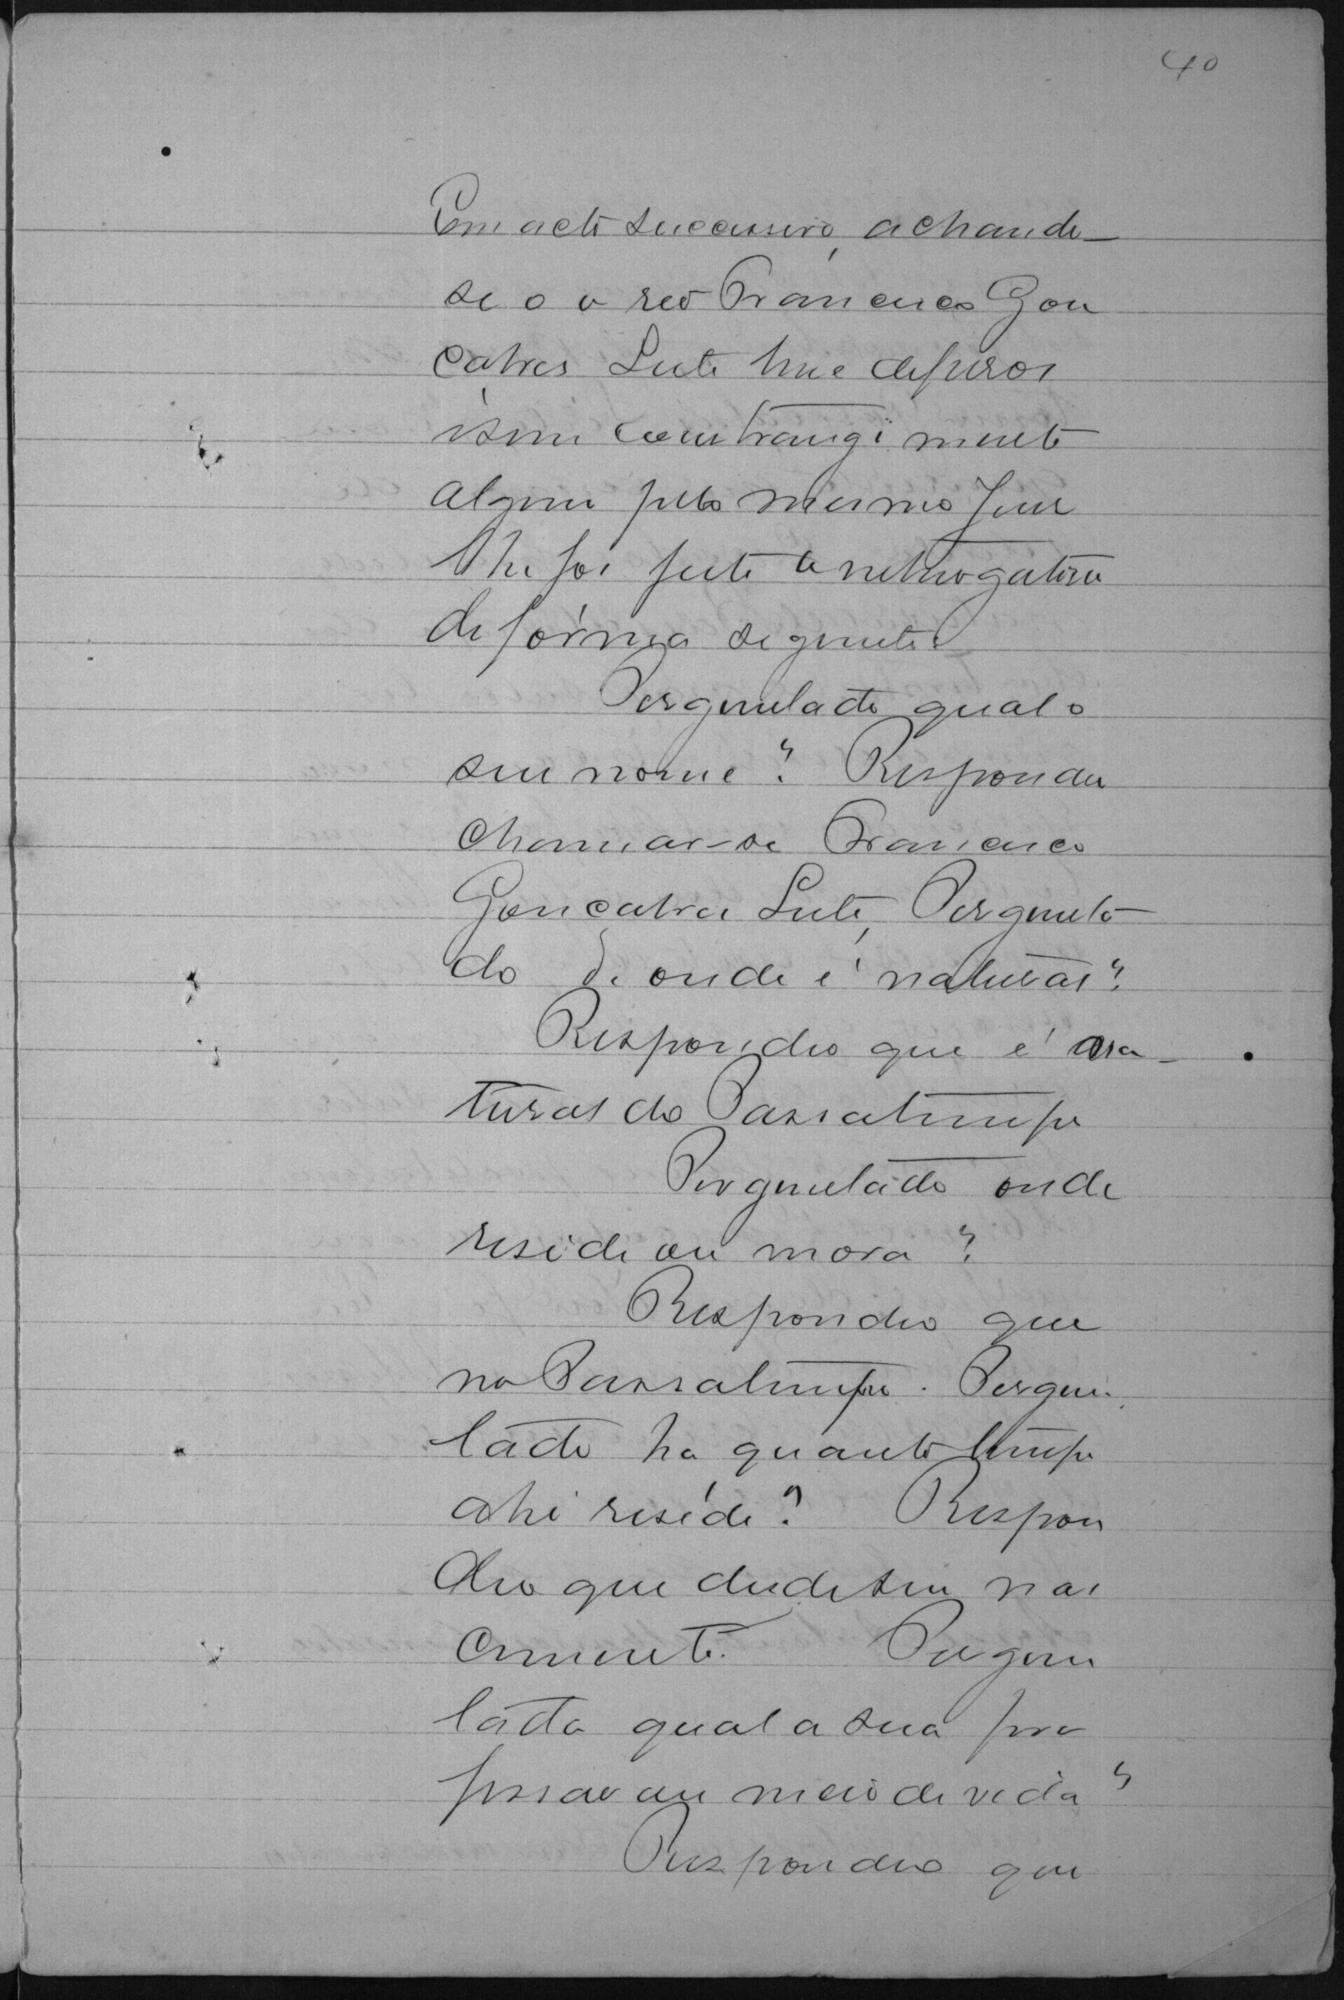 40
Em acto successivo, achando-
se o o reo Francisco Gon
çalves Leite livre de ferros
e sem constrangimento
algum pelo mesmo Juiz
lhe foi feito o interrogatorio
da fórma seguinte:
Perguntado qual o
seu nome? Respondeu
chamar-se Francisco
Gonçalves Leite, Pergunta
do de onde é natural?
Respondeo que é na-
tural do Passatempo
Perguntado onde
reside ou mora?
Respondeo que
no Passatempo. Pergun
tado ha quanto tempo
ahi reside? Respon
deo que desde seu nas
cimento. Pergun
tado qual a sua pro
fissão ou meio de vida?
Respondeo que